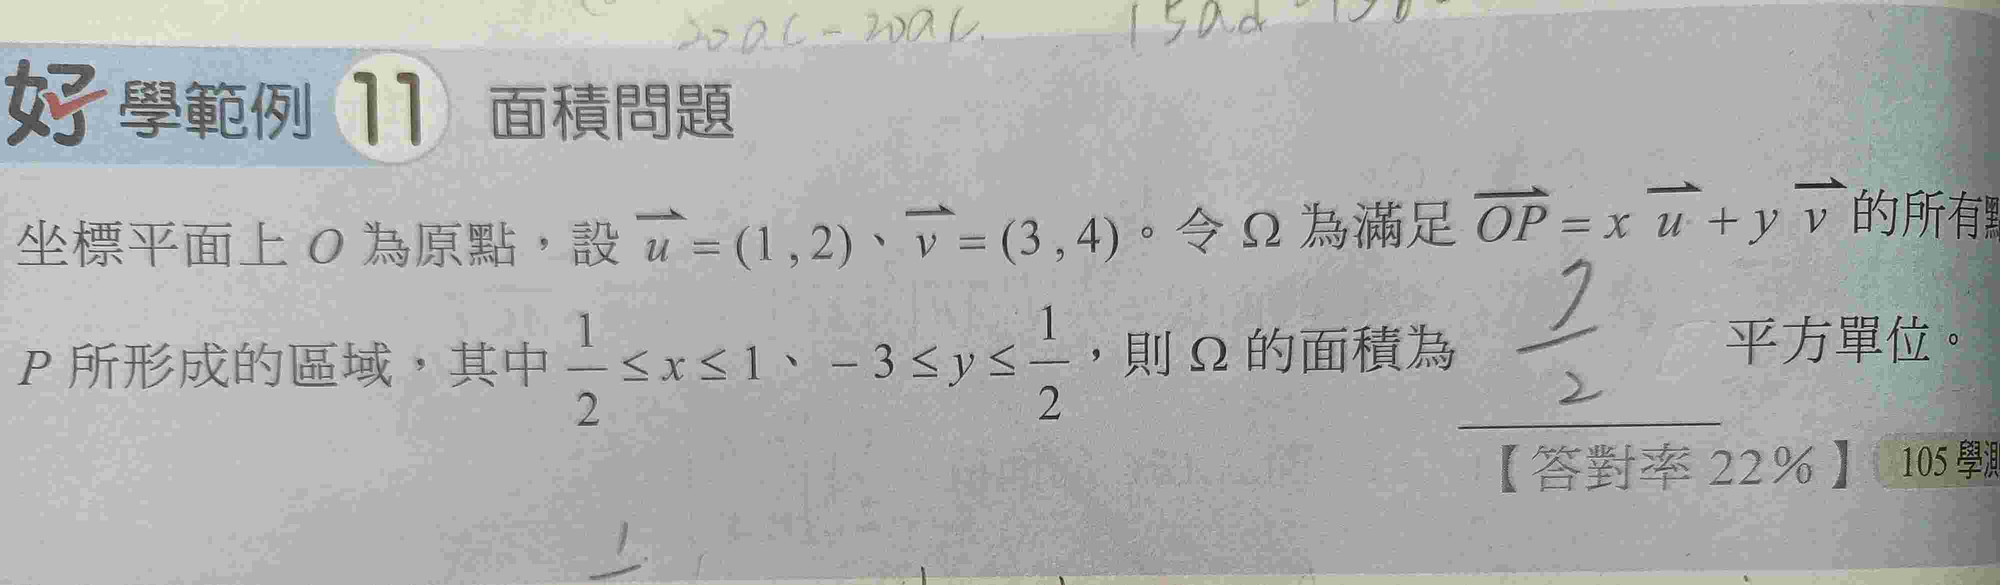 20ac-20ac. 15ad
好學範例 11 面積問題
坐標平面上 O 為原點，設 u⃗ = (1 , 2)、v⃗ = (3 , 4)。令 Ω 為滿足 OP⃗ = x u⃗ + y v⃗ 的所有點
P 所形成的區域，其中 1/2 ≤ x ≤ 1、– 3 ≤ y ≤ 1/2，則 Ω 的面積為 7/2 平方單位。
【答對率 22%】 105 學測
1